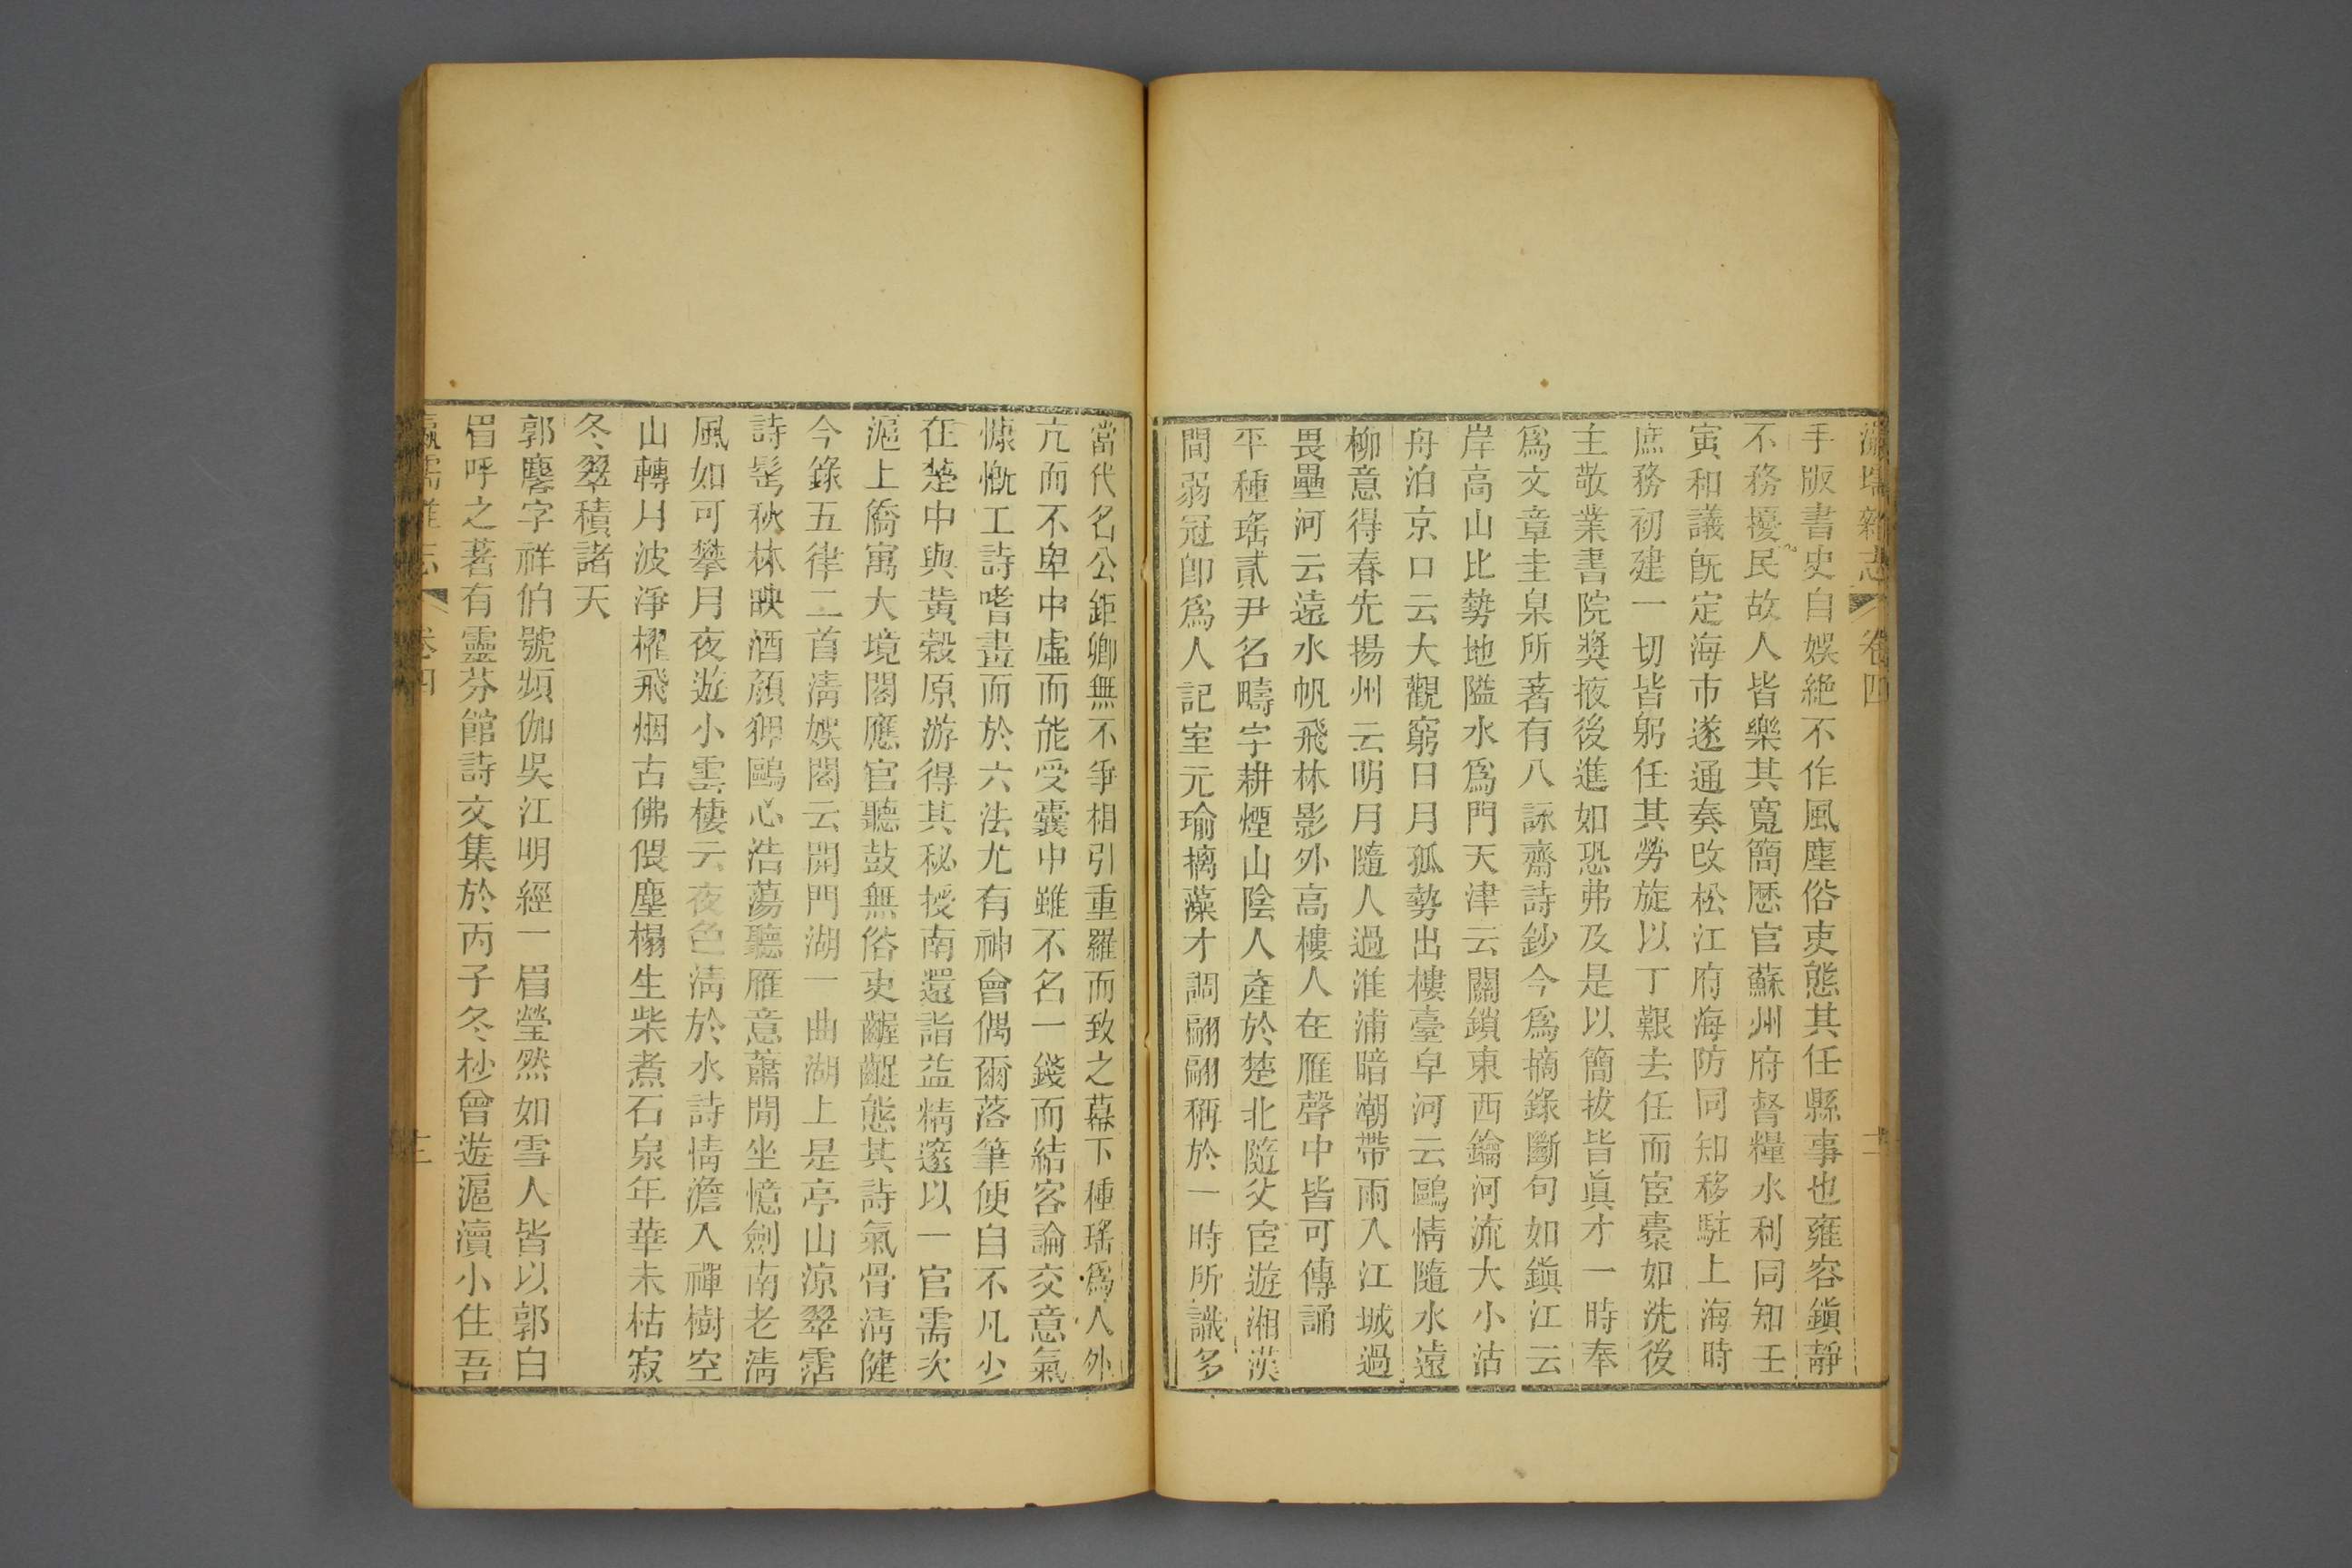 瀛壖雜志 卷四 十二
手版書史自娛絶不作風塵俗吏態其任縣事也雍容鎭靜
不務擾民故人皆樂其寬簡歷官蘇州府督糧水利同知壬
寅和議旣定海市遂通奏改松江府海防同知移駐上海時
庶務初建一切皆躬任其勞旋以丁艱去任而宦橐如洗後
主敬業書院獎掖後進如恐弗及是以簡拔皆眞才一時奉
爲文章圭臬所著有八詠齋詩鈔今爲摘錄斷句如鎭江云
岸高山比勢地隘水爲門天津云關鎖東西鑰河流大小沽
舟泊京口云大觀窮日月孤勢出樓臺阜河云鷗情隨水遠
柳意得春先揚州云明月隨人過淮浦暗潮帶雨入江城過
畏壘河云遠水帆飛林影外高樓人在雁聲中皆可傳誦
平種瑤貳尹名疇字耕煙山陰人產於楚北隨父宦遊湘漢
間弱冠卽爲人記室元瑜摛藻才調翩翩稱於一時所識多
當代名公鉅卿無不爭相引重羅而致之幕下種瑤爲人外
亢而不卑中虛而能受囊中雖不名一錢而結客論交意氣
慷慨工詩嗜畫而於六法尤有神會偶爾落筆便自不凡少
在楚中與黃穀原游得其秘授南還詣益精邃以一官需次
滬上僑寓大境閣應官聽鼓無俗吏齷齪態其詩氣骨清健
今錄五律二首清娛閣云開門湖一曲湖上是亭山涼翠霑
詩髩秋林映酒顏狎鷗心浩蕩聽雁意蕭閒坐憶劍南老清
風如可攀月夜遊小雲棲云夜色清於水詩情澹入禪樹空
山轉月波淨櫂飛烟古佛偎塵榻生柴煮石泉年華未枯寂
冬翠積諸天
郭麐字祥伯號頻伽吳江明經一眉瑩然如雪人皆以郭白
眉呼之著有靈芬館詩文集於丙子冬杪曾遊滬瀆小住吾
卷四